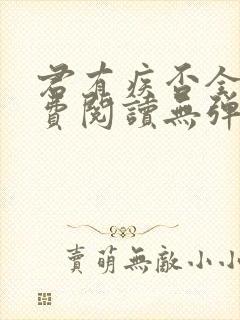 君有疾否全
費閱讀無彈
賣萌無敵小小